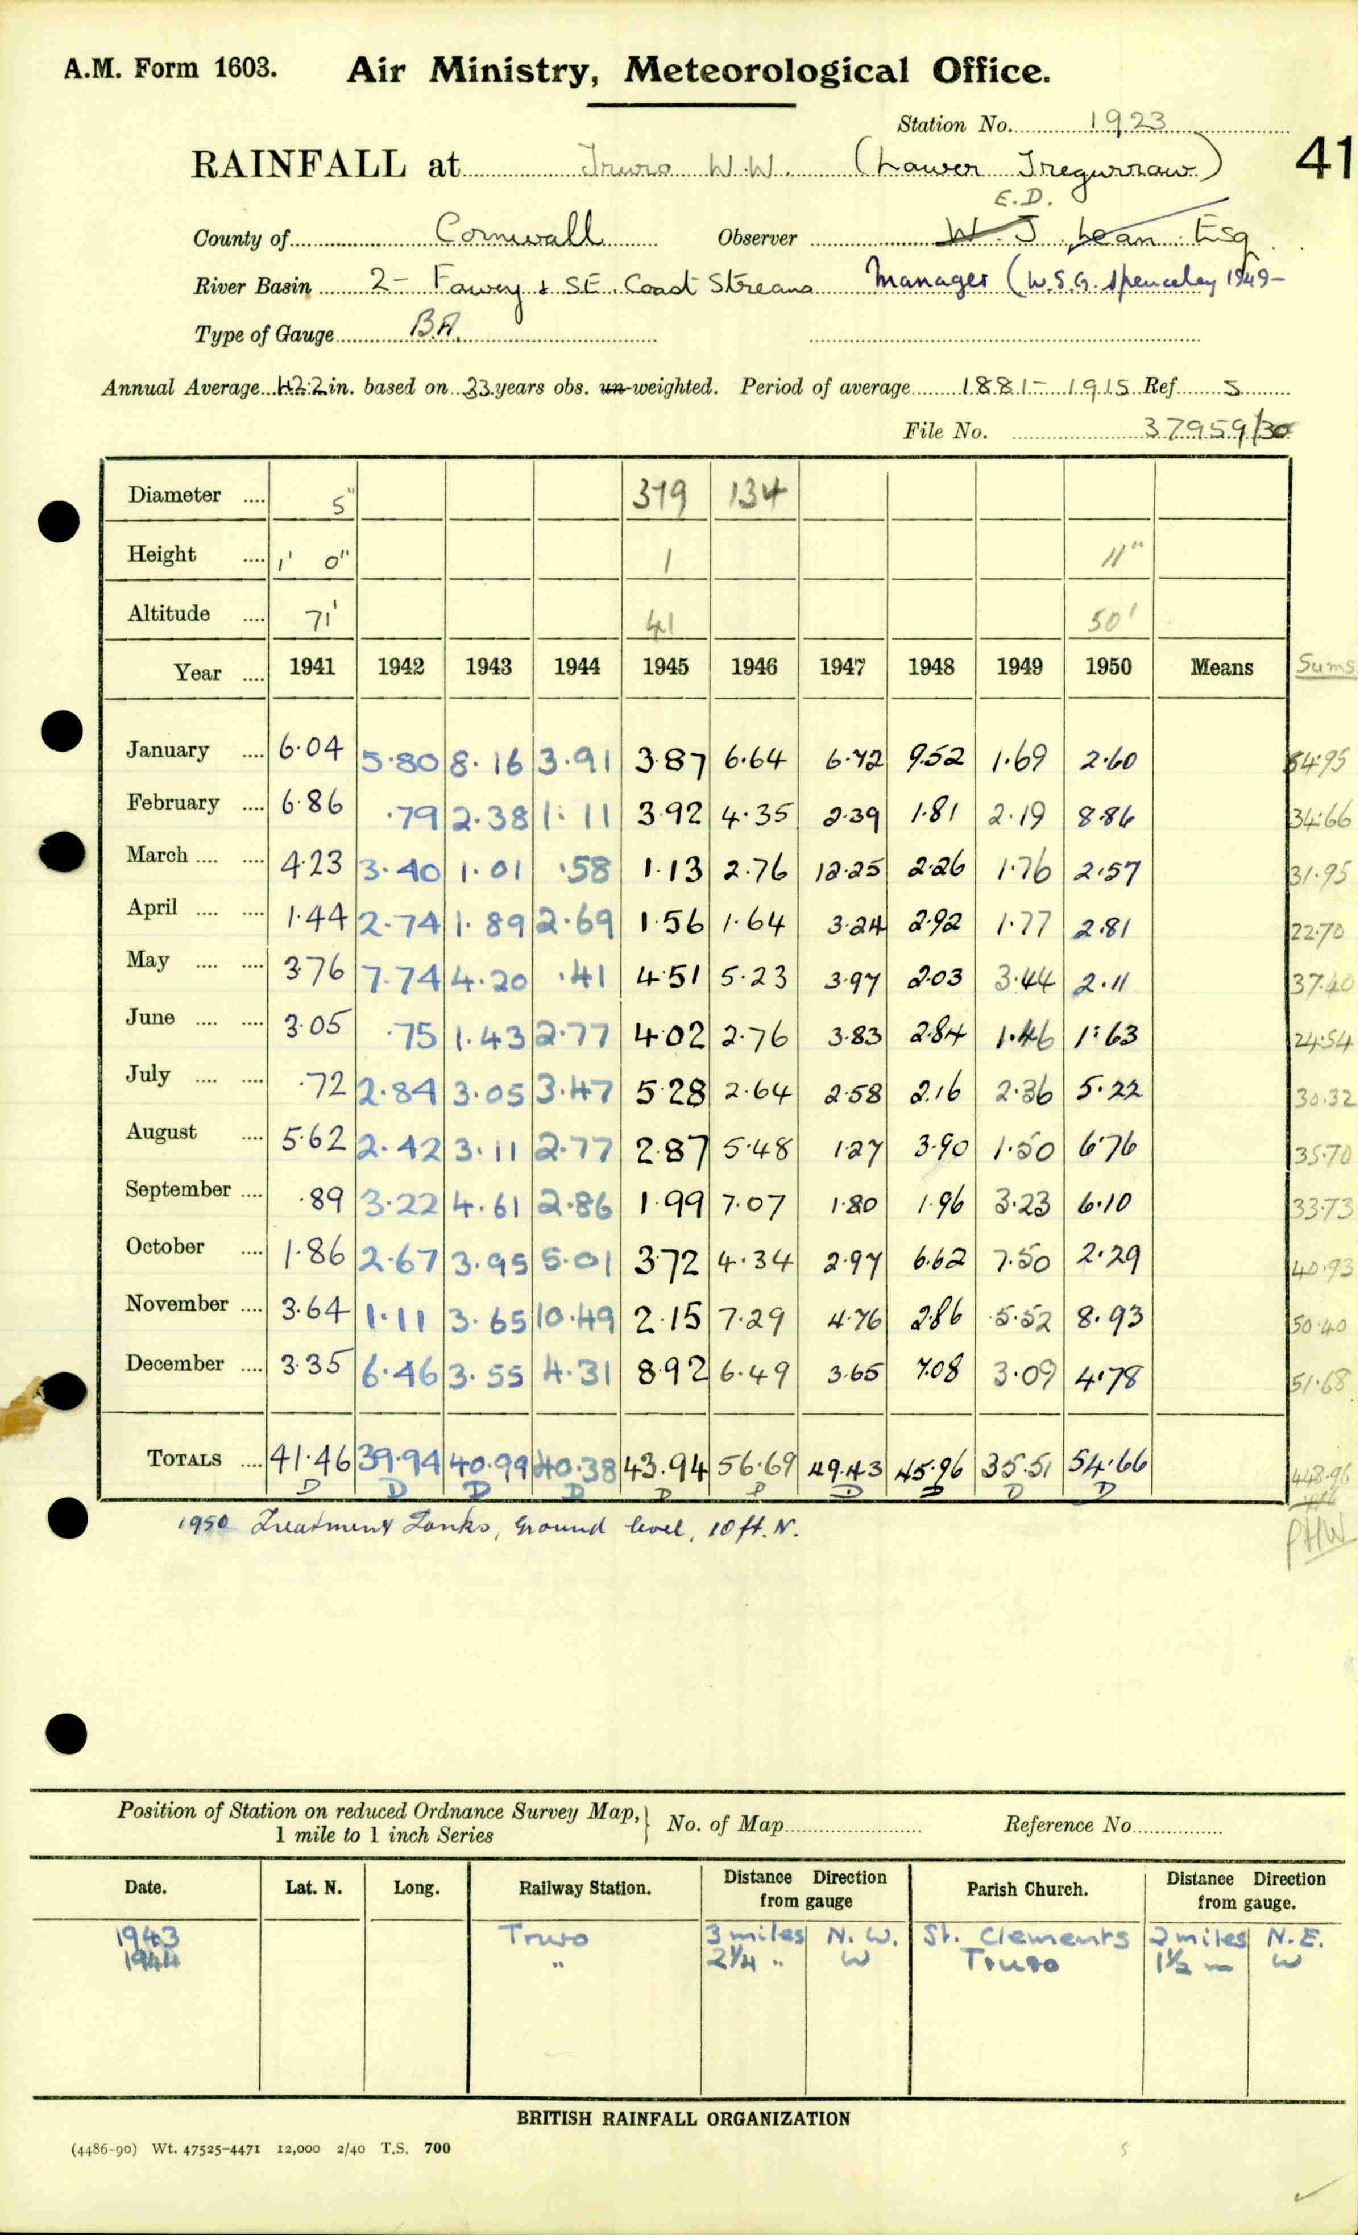 A.M. Form 1603. Air Ministry, Meteorological Office.
Station No. 1923
RAINFALL at Truro W.W. (Lower Tregurraw) 41
E.D.
County of Cornwall Observer W. J. Lean Esq
River Basin 2 - Fowey & S.E. Coast Streams Manager (W.S.G. Spenceley 1949-
Type of Gauge B.A.
Annual Average 42.2 in. based on 33 years obs. un-weighted. Period of average 1881 - 1915 Ref 5
File No. 37959/30
Diameter .... 5" 379 134
Height .... 1' 0" 1 11"
Altitude .... 71' 41 50'
Year .... 1941 1942 1943 1944 1945 1946 1947 1948 1949 1950 Means Sums
January .... 6.04 5.80 8.16 3.91 3.87 6.64 6.72 9.52 1.69 2.60 54.95
February .... 6.86 .79 2.38 1.11 3.92 4.35 2.39 1.81 2.19 8.86 34.66
March .... .... 4.23 3.40 1.01 .58 1.13 2.76 12.25 2.26 1.76 2.57 31.95
April .... .... 1.44 2.74 1.89 2.69 1.56 1.64 3.24 2.92 1.77 2.81 22.70
May .... .... 3.76 7.74 4.20 .41 4.51 5.23 3.97 2.03 3.44 2.11 37.40
June .... .... 3.05 .75 1.43 2.77 4.02 2.76 3.83 2.84 1.46 1.63 24.54
July .... .... .72 2.84 3.05 3.47 5.28 2.64 2.58 2.16 2.36 5.22 30.32
August .... 5.62 2.42 3.11 2.77 2.87 5.48 1.27 3.90 1.50 6.76 35.70
September .... .89 3.22 4.61 2.86 1.99 7.07 1.80 1.96 3.23 6.10 33.73
October .... 1.86 2.67 3.95 5.01 3.72 4.34 2.97 6.62 7.50 2.29 40.93
November .... 3.64 1.11 3.65 10.49 2.15 7.29 4.76 2.86 5.52 8.93 50.40
December .... 3.35 6.46 3.55 4.31 8.92 6.49 3.65 7.08 3.09 4.78 51.68
TOTALS .... 41.46 39.94 40.99 40.38 43.94 56.69 49.43 45.96 35.51 54.66 448.96
D D D D D P D D D D
1950 Treatment Tanks, Ground level, 10ft. N. PHW
Position of Station on reduced Ordnance Survey Map, 1 mile to 1 inch Series } No. of Map Reference No
Date. Lat. N. Long. Railway Station. Distance Direction from gauge Parish Church. Distance Direction from gauge.
1943 Truro 3 miles N.W. St. Clements 2 miles N.E.
1944 " 2¼ " W Truro 1½ m W
BRITISH RAINFALL ORGANIZATION
(4486-90) Wt. 47525-4471 12,000 2/40 T.S. 700 5